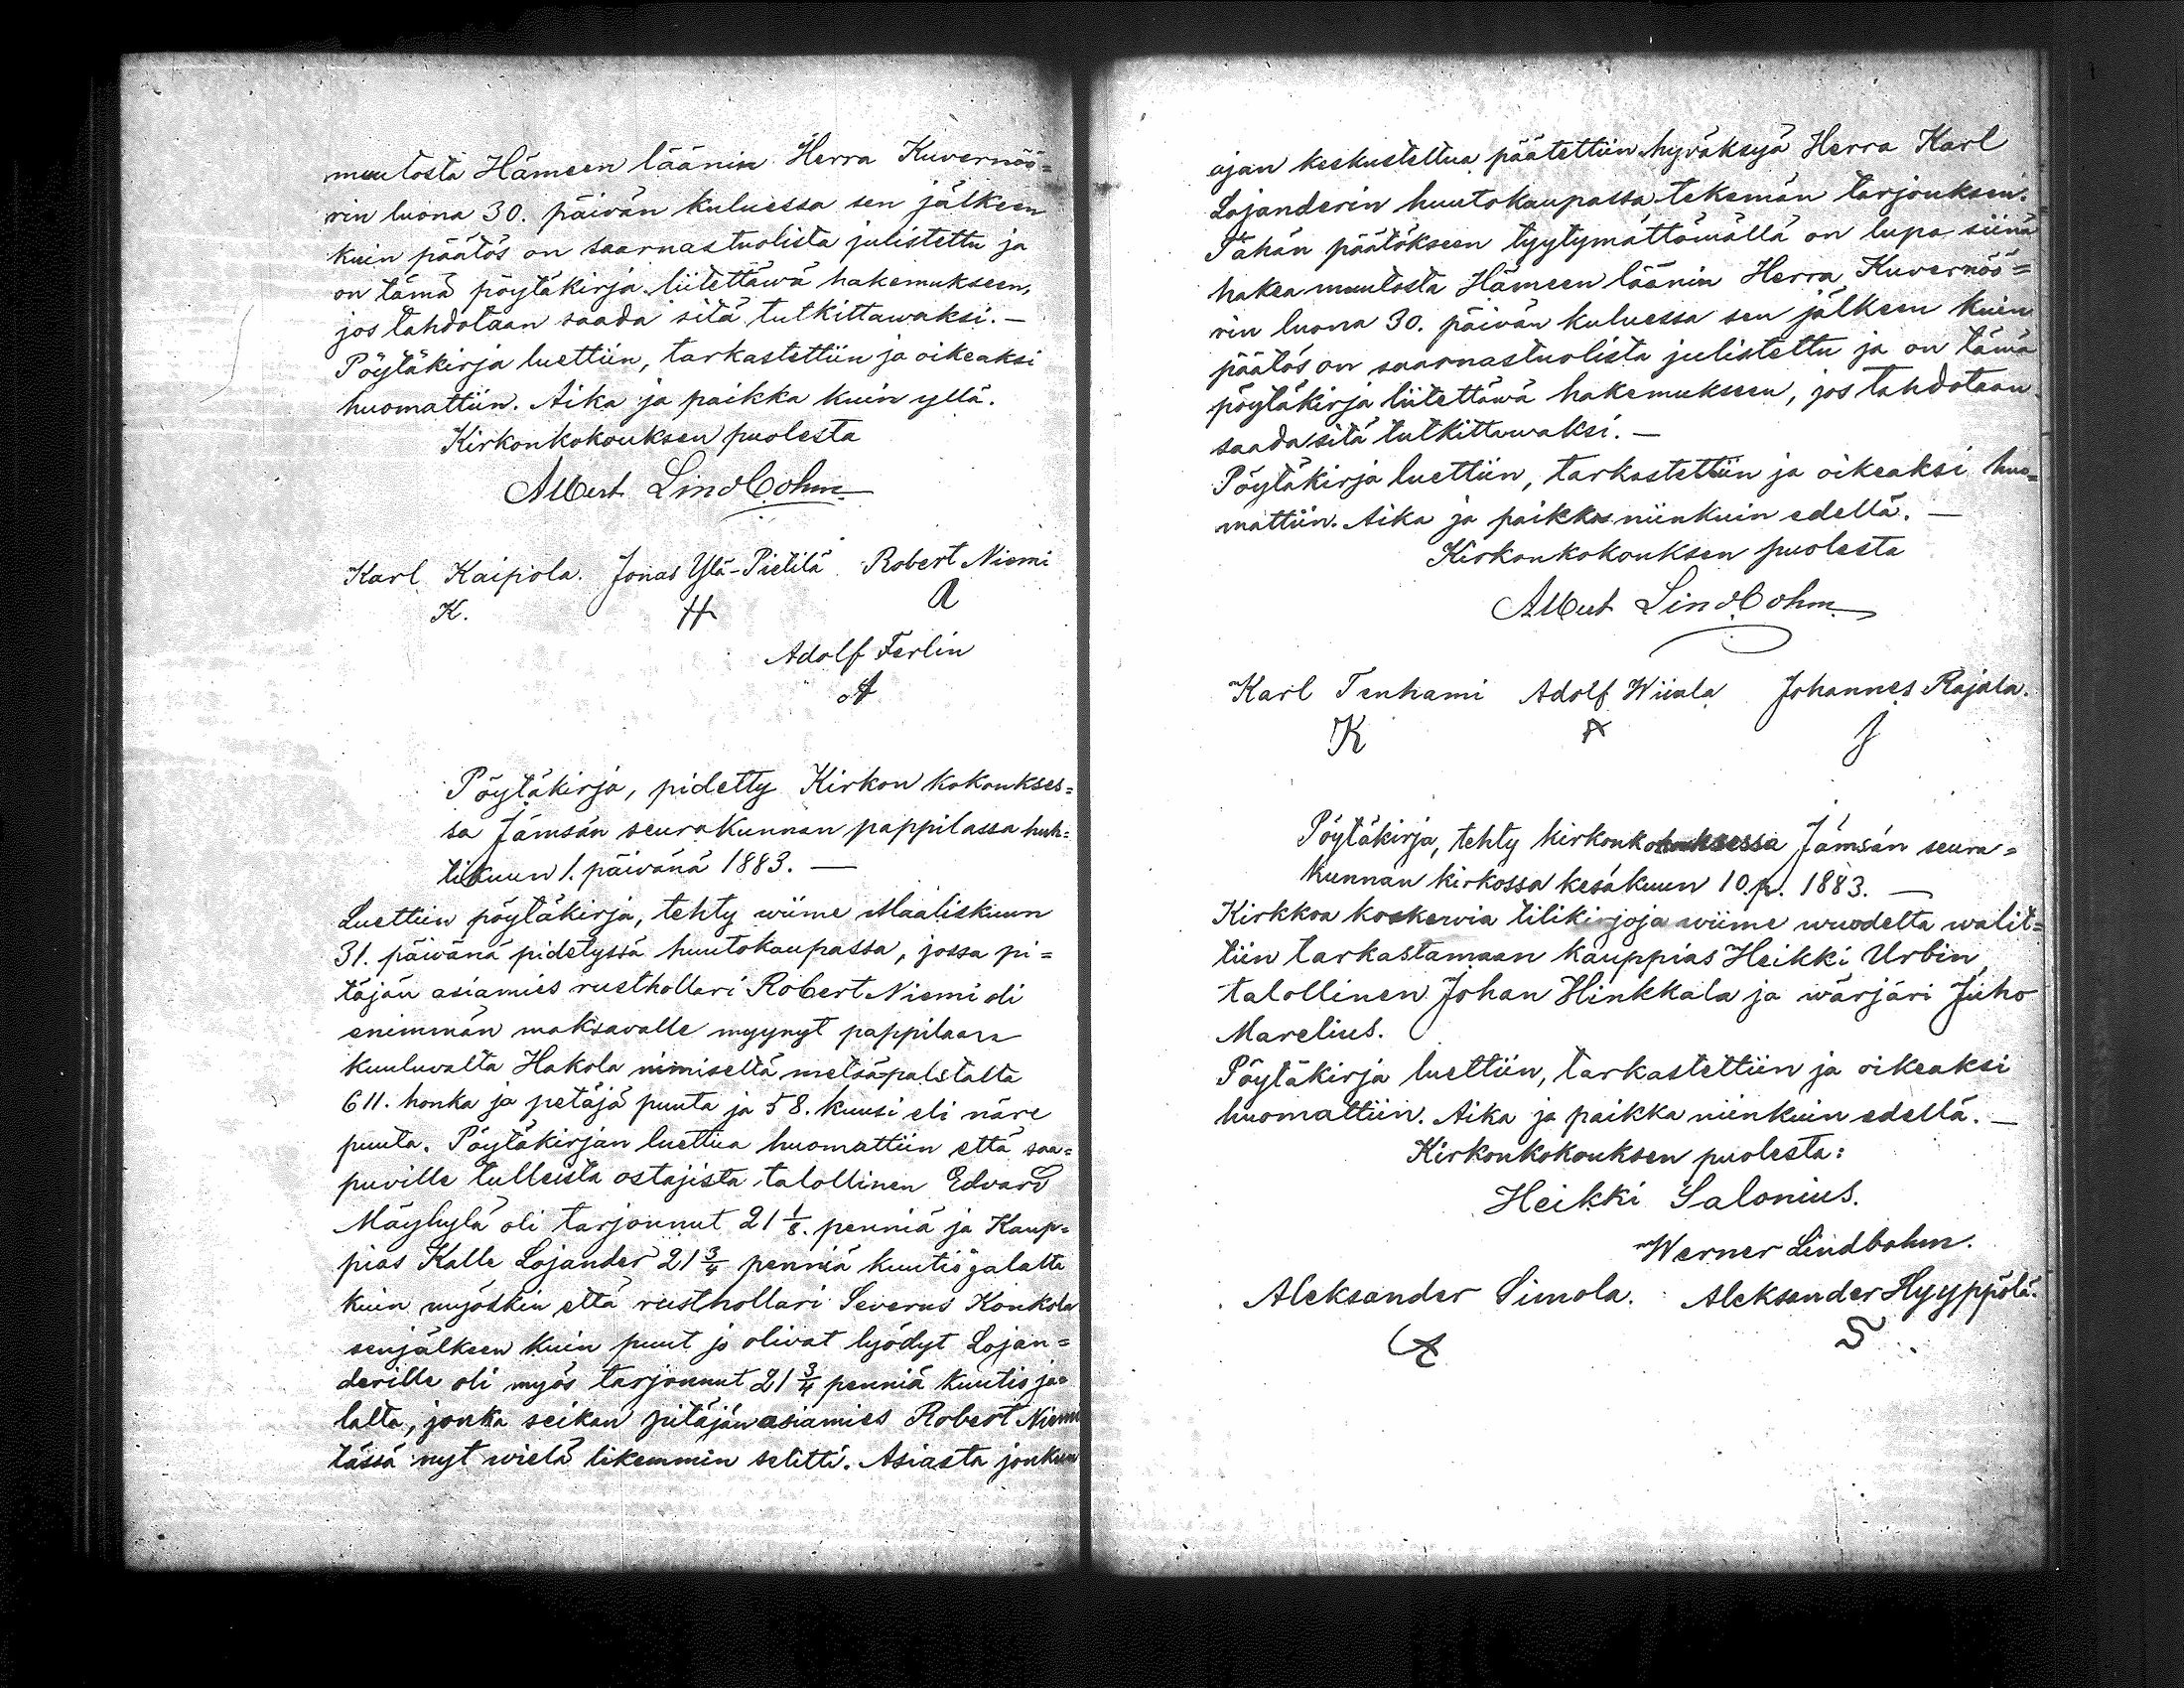 muutosta Hämeen läänin Herra Kuvernöö=
rin luona 30. päivän kuluessa sen jälkeen
kuin päätös on saarnastuolista julistettu ja
on tämä pöytäkirja liitettävä hakemukseen,
jos tahdotaan saada sitä tutkittawaksi. —
Pöytäkirja luettiin, tarkastettiin ja oikeaksi
huomattiin. Aika ja paikka kuin yllä.
Kirkonkokouksen puolesta
Albert Lindbohm
Karl Kaipola. Jonas Ylä-Pietilä Robert Niemi
K.
Adolf Ferlin
A
Pöytäkirja, pidetty Kirkon kokoukses=
sa Jämsän seurakunnan pappilassa huh=
tikuun 1. päivänä 1883. —
Luettiin pöytäkirja, tehty wiime Maaliskuun
31. päivänä pidetyssä huutokaupassa, jossa pi=
täjän asiamies rusthollari Robert Niemi oli
enimmän maksavalle myynyt pappilaan
kuuluvalta Hakola nimiseltä metsäpalstalta
611. honka ja petäjä puuta ja 58. kuusi eli näre
puuta. Pöytäkirjan luettua huomattiin että saa=
puville tulleista ostajista talollinen Edvard
Mäyhylä oli tarjonnut 21 1/8. penniä ja Kaup=
pias Kalle Lojander 21 3/4 penniä kuutiojalalta
kuin myöskin että rusthollari Severus Konkola
senjälkeen kuin puut jo olivat lyödyt Lojan=
derille oli myös tarjonnut 21 3/4 penniä kuutioja=
lalta, jonka seikan pitäjän asiamies Robert Niemi
tässä nyt wielä likemmin selitti. Asiasta jonkun
ajan keskusteltua päätettiin hyväksyä Herra Karl
Lojanderin huutokaupassa tekemän tarjouksen.
Tähän päätökseen tyytymättömällä on lupa siinä
hakea muutosta Hämeen läänin Herra Kuvernöö=
rin luona 30. päivän kuluessa sen jälkeen kuin
päätös on saarnastuolista julistettu ja on tämä
pöytäkirja liitettävä hakemukseen, jos tahdotaan
saada sitä tutkittavaksi. —
Pöytäkirja luettiin, tarkastettiin ja oikeaksi huo=
mattiin. Aika ja paikka niinkuin edellä. —
Kirkonkokouksen puolesta
Albert Lindbohm
Karl Tenhami Adolf Wiiala Johannes Rajala.
K A J
Pöytäkirja, tehty kirkonkokouksessa Jämsän seura=
kunnan kirkossa kesäkuun 10. p. 1883. —
Kirkkoa koskewia tilikirjoja wiime wuodelta walit=
tiin tarkastamaan kauppias Heikki Urbin,
talollinen Johan Hinkkala ja wärjäri Juho
Marelius.
Pöytäkirja luettiin, tarkastettiin ja oikeaksi
huomattiin. Aika ja paikka niinkuin edellä. —
Kirkonkokouksen puolesta:
Heikki Salonius.
Werner Lindbohm.
Aleksander Simola. Aleksander Hyyppölä.
A S